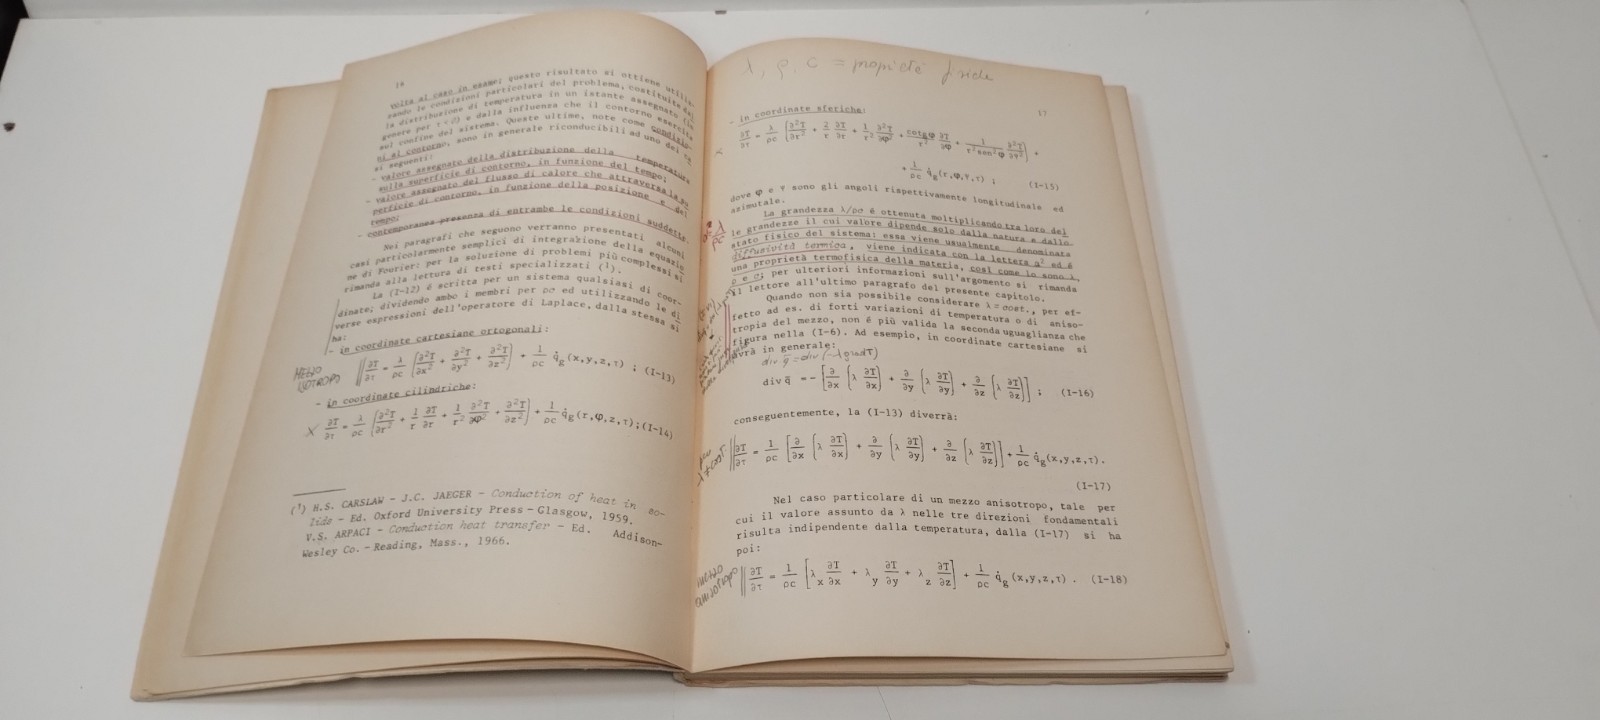 volta al caso in esame; questo risultato si ottiene utiliz-
zando le condizioni particolari del problema, costituite dal
la distribuzione di temperatura in un istante assegnato (in
genere per τ = 0) e dalla influenza che il contorno esercita
sul confine del sistema. Queste ultime, note come condizio-
ni al contorno, sono in generale riconducibili ad uno dei ca
si seguenti:
- valore assegnato della distribuzione della temperatura
sulla superficie di contorno, in funzione del tempo;
- valore assegnato del flusso di calore che attraversa la su
perficie di contorno, in funzione della posizione e del
tempo;
- contemporanea presenza di entrambe le condizioni suddette.
Nei paragrafi che seguono verranno presentati alcuni
casi particolarmente semplici di integrazione della equazio
ne di Fourier: per la soluzione di problemi più complessi si
rimanda alla lettura di testi specializzati (¹).
La (I-12) é scritta per un sistema qualsiasi di coor-
dinate; dividendo ambo i membri per ρc ed utilizzando le di
verse espressioni dell'operatore di Laplace, dalla stessa si
ha:
- in coordinate cartesiane ortogonali:
MEZZO
ISOTROPO
∂T/∂τ = λ/ρc [∂²T/∂x² + ∂²T/∂y² + ∂²T/∂z²] + 1/ρc q̇g(x,y,z,τ) ; (I-13)
- in coordinate cilindriche:
∂T/∂τ = λ/ρc [∂²T/∂r² + 1/r ∂T/∂r + 1/r² ∂²T/∂φ² + ∂²T/∂z²] + 1/ρc q̇g(r,φ,z,τ); (I-14)
(¹) H.S. CARSLAW - J.C. JAEGER - Conduction of heat in so-
lids - Ed. Oxford University Press - Glasgow, 1959.
V.S. ARPACI - Conduction heat transfer - Ed. Addison-
Wesley Co. - Reading, Mass., 1966.
λ, ρ, c = propietà fisiche
17
- in coordinate sferiche:
∂T/∂τ = λ/ρc [∂²T/∂r² + 2/r ∂T/∂r + 1/r² ∂²T/∂φ² + cotgφ/r² ∂T/∂φ + 1/r²sen²φ ∂²T/∂γ²] +
+ 1/ρc q̇g(r,φ,γ,τ) ; (I-15)
dove φ e γ sono gli angoli rispettivamente longitudinale ed
azimutale.
La grandezza λ/ρc é ottenuta moltiplicando tra loro del
le grandezze il cui valore dipende solo dalla natura e dallo
stato fisico del sistema: essa viene usualmente denominata
diffusività termica, viene indicata con la lettera a² ed é
una proprietà termofisica della materia, così come lo sono λ,
ρ e c; per ulteriori informazioni sull'argomento si rimanda
il lettore all'ultimo paragrafo del presente capitolo.
Quando non sia possibile considerare λ = cost., per ef-
fetto ad es. di forti variazioni di temperatura o di aniso-
tropia del mezzo, non é più valida la seconda uguaglianza che
figura nella (I-6). Ad esempio, in coordinate cartesiane si
avrà in generale:
div q̄ = div (-λ grad T)
div q̄ = - [∂/∂x (λ ∂T/∂x) + ∂/∂y (λ ∂T/∂y) + ∂/∂z (λ ∂T/∂z)] ; (I-16)
conseguentemente, la (I-13) diverrà:
per
λ≠cost
∂T/∂τ = 1/ρc [∂/∂x (λ ∂T/∂x) + ∂/∂y (λ ∂T/∂y) + ∂/∂z (λ ∂T/∂z)] + 1/ρc q̇g(x,y,z,τ).
(I-17)
Nel caso particolare di un mezzo anisotropo, tale per
cui il valore assunto da λ nelle tre direzioni fondamentali
risulta indipendente dalla temperatura, dalla (I-17) si ha
poi:
mezzo
anisotropo
∂T/∂τ = 1/ρc [λx ∂T/∂x + λy ∂T/∂y + λz ∂T/∂z] + 1/ρc q̇g(x,y,z,τ) . (I-18)